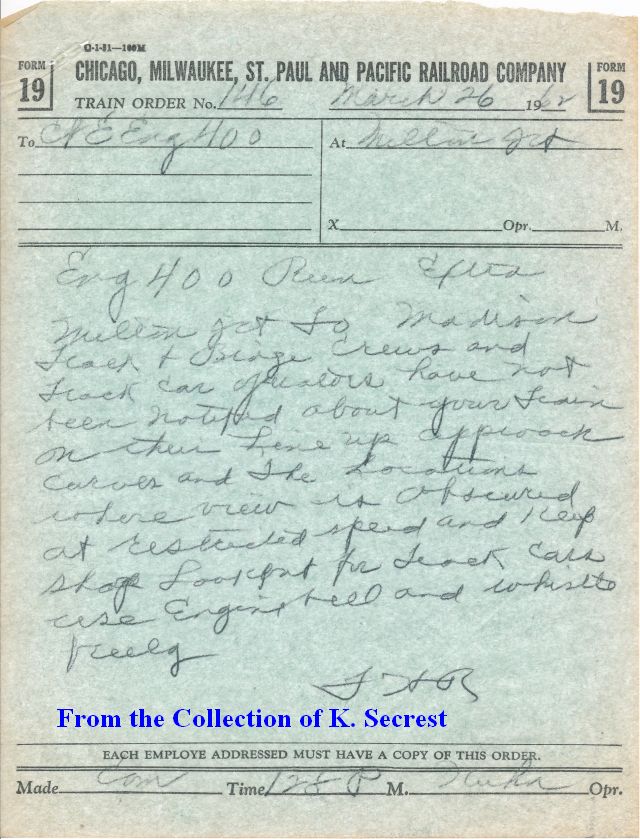 G-1-51—100M
FORM 19
CHICAGO, MILWAUKEE, ST. PAUL AND PACIFIC RAILROAD COMPANY
FORM 19
TRAIN ORDER No. 146 March 26 1962
To C&E Eng 400
At Milton Jct
X Opr. M.
Eng 400 Run Extra
Milton Jct To Madison
Track & Bridge Crews and
Track Car operators have not
been notified about your Train
on their Line up approach
Curves and The Locations
where view is obscured
at restricted speed and Keep
sharp Lookout for Track Cars
use Engine bell and whistle
freely
From the Collection of K. Secrest
EACH EMPLOYE ADDRESSED MUST HAVE A COPY OF THIS ORDER.
Made Com Time P M. Opr.